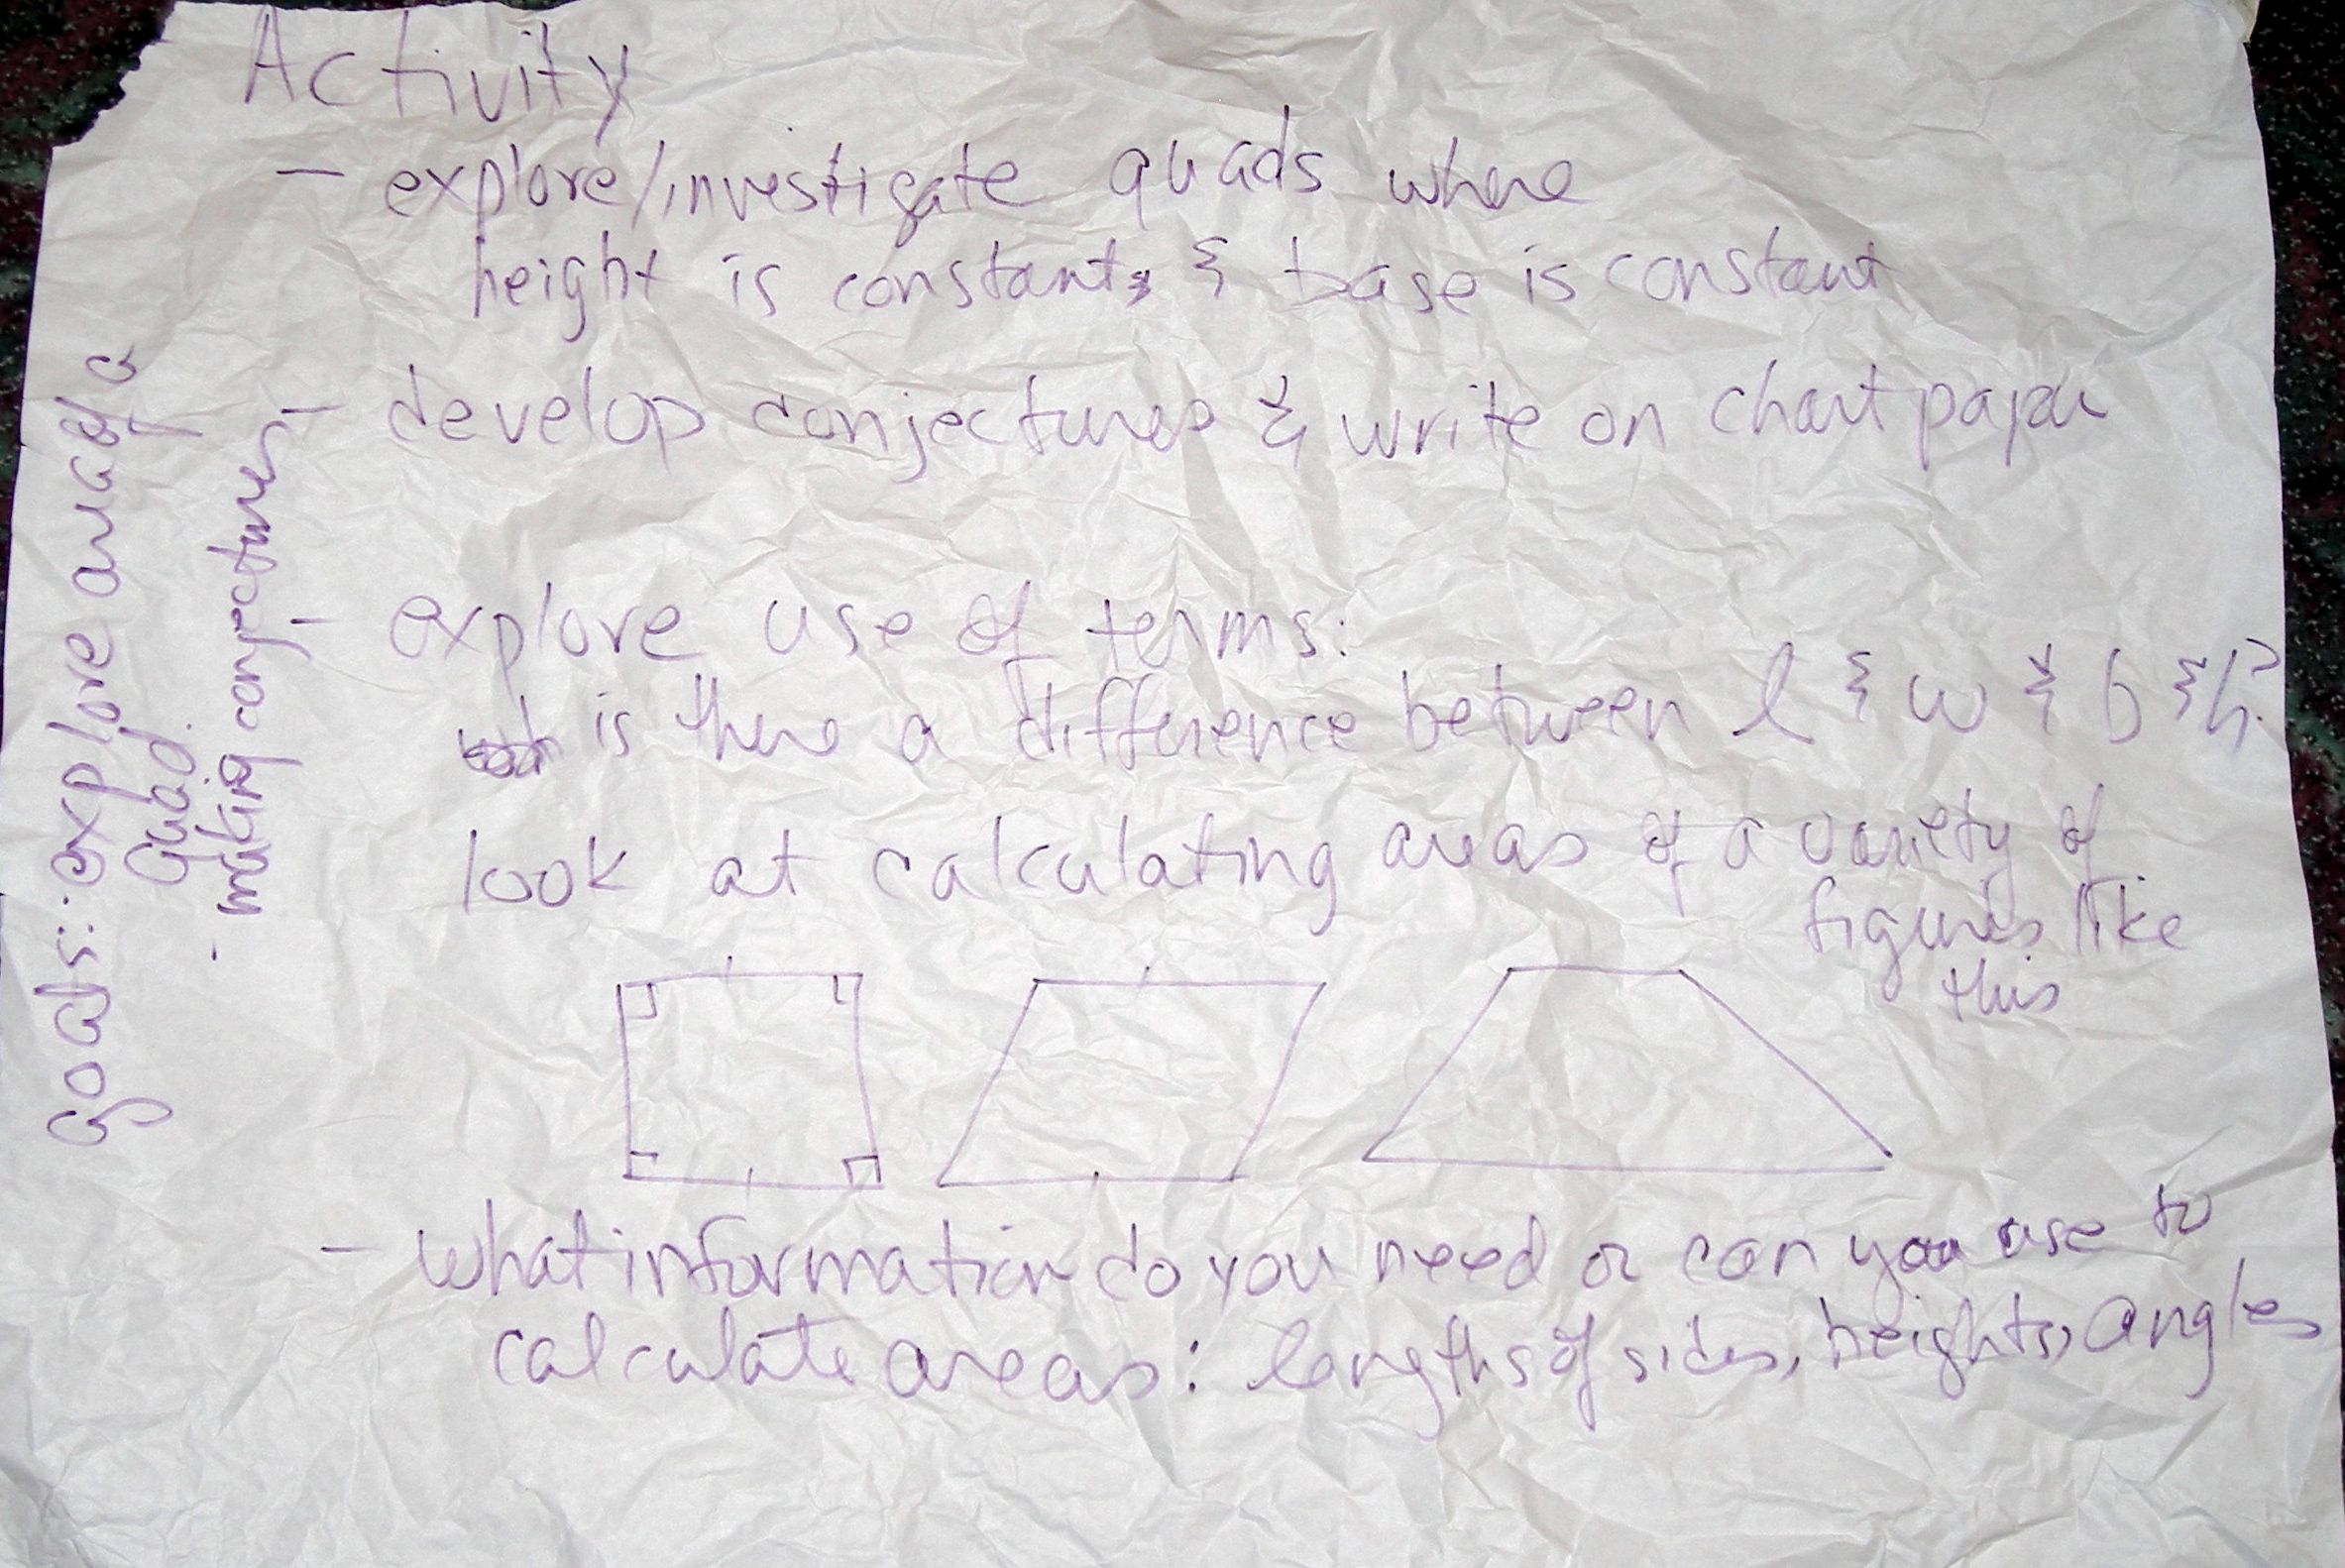 Activity
- explore/investigate quads where
height is constant, & base is constant
- develop conjectures & write on chart paper
- explore use of terms:
is there a difference between l & w & b & h?
look at calculating areas of a variety of
figures like
this
- what information do you need or can you use to
calculate areas: lengths of sides, heights, angles
goals: explore area of a
quad.
- making conjectures